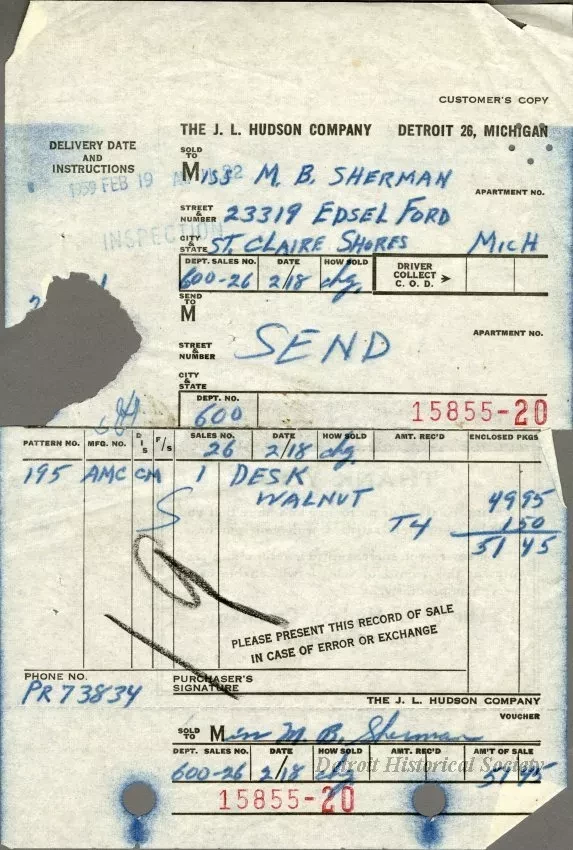 CUSTOMER'S COPY
THE J. L. HUDSON COMPANY DETROIT 26, MICHIGAN
DELIVERY DATE
AND
INSTRUCTIONS
1959 FEB 19
INSPECTION
SOLD
TO
MISS M. B. SHERMAN
APARTMENT NO.
STREET
&
NUMBER 23319 EDSEL FORD
CITY
&
STATE ST. CLAIRE SHORES MICH
DEPT. SALES NO. DATE HOW SOLD DRIVER
COLLECT
C. O. D.
600-26 2/18 chg.
SEND
TO
M
SEND
APARTMENT NO.
STREET
&
NUMBER
CITY
&
STATE
DEPT. NO.
600
15855-20
PATTERN NO. MFG. NO. DIS F/S SALES NO. DATE HOW SOLD AMT. REC'D ENCLOSED PKGS
26 2/18 chg
195 AMC CM 1 DESK
WALNUT 49 95
S T4 1 50
51 45
PLEASE PRESENT THIS RECORD OF SALE
IN CASE OF ERROR OR EXCHANGE
PHONE NO.
PR 73834
PURCHASER'S
SIGNATURE
THE J. L. HUDSON COMPANY
VOUCHER
SOLD
TO Miss M. B. Sherman
DEPT. SALES NO. DATE HOW SOLD AMT. REC'D AM'T OF SALE
600-26 2/18 chg 51 45
Detroit Historical Society
15855-20